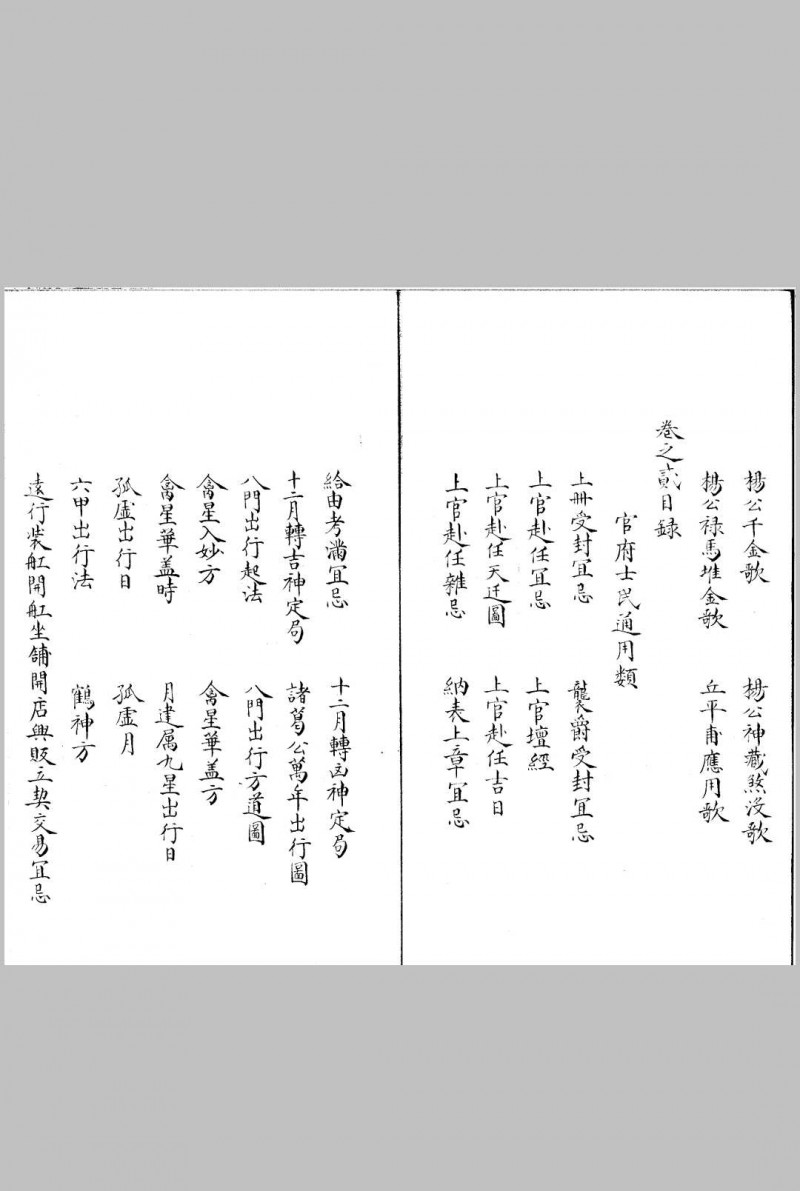 楊公千金歌　楊公神藏煞没歌
楊公禄馬堆金歌　丘平甫應用歌
卷之貳目録
官府士民通用類
上冊受封宜忌　襲爵受封宜忌
上官赴任宜忌　上官壇經
上官赴任天迁圖　上官赴任吉日
上官赴任雜忌　納表上章宜忌
給由考滿宜忌　十二月轉凶神定局
十二月轉吉神定局　諸葛公萬年出行圖
八門出行起法　八門出行方道圖
禽星入妙方　禽星華盖方
禽星華盖時　月建属九星出行日
孤虛出行日　孤虛月
六甲出行法　鶴神方
遠行裝舡開舡坐舖開店興販立契交易宜忌